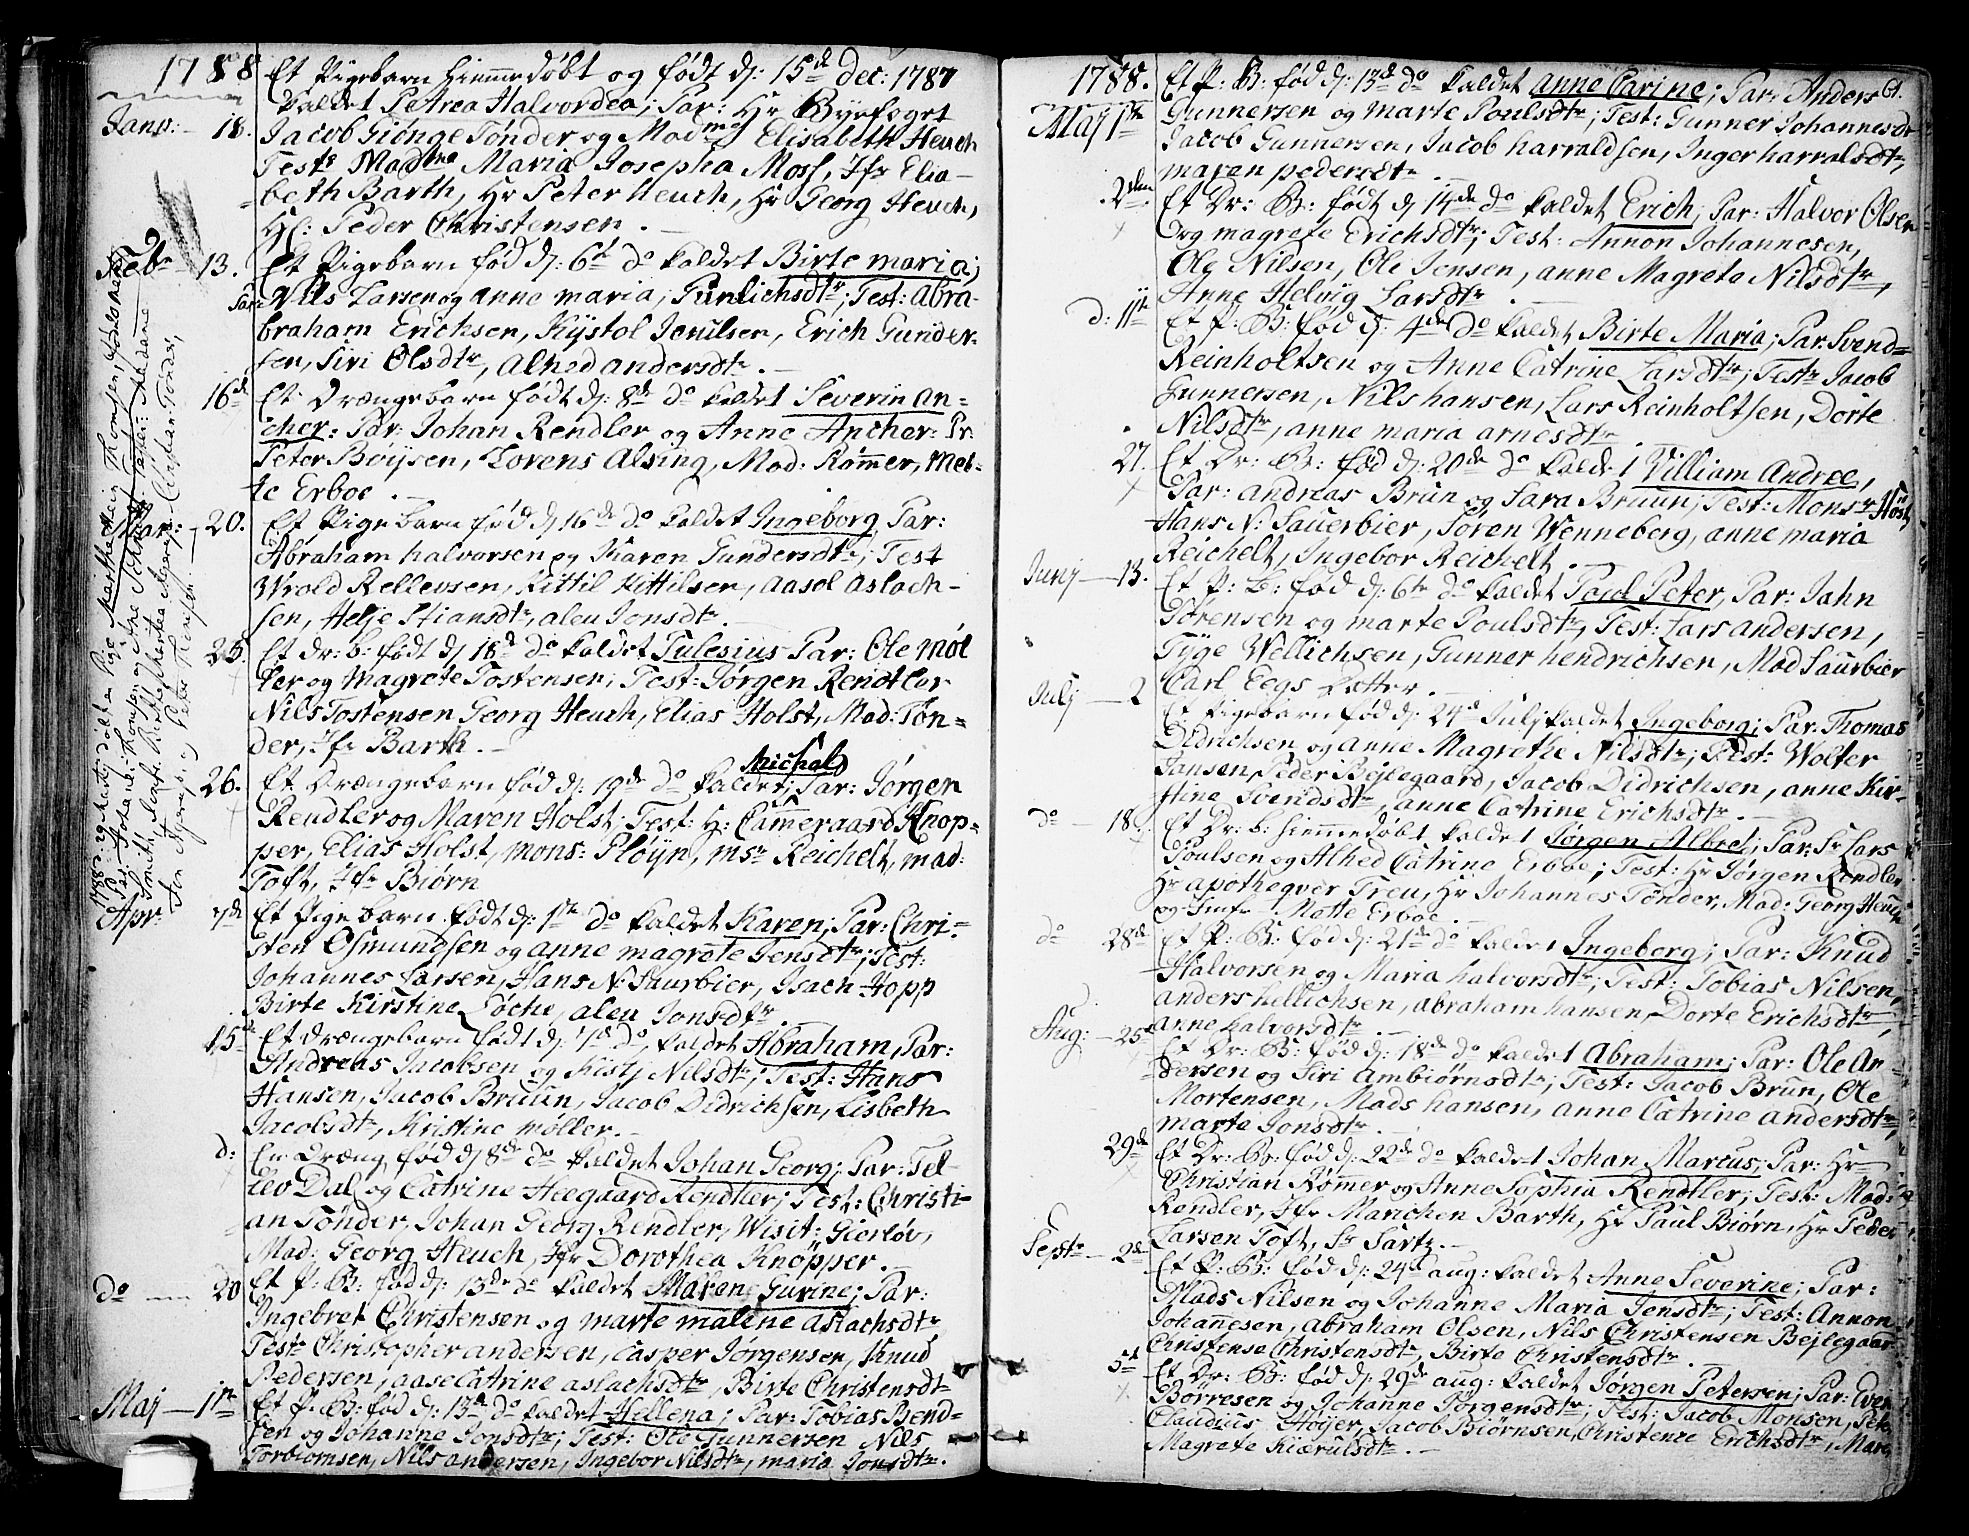 1788 Et Pigebarn hiemmedøbt og født d: 15de Dec: 1787
kaldet Petrea Halvordea; Par: Hr Byefoget
Janv: - 18. Jacob Giönge Tønder og Madme Elisabeth Heuch
Test: Madme Maria Josepha Moss, Jfr Elia-
beth Barth, Hr Peter Heuch, Hr Georg Heuch,
Hl: Peder Christensen. -
Febr - 13. Et Pigebarn fød d: 6d do kaldet Birte maria;
Par: Nils Larsen og anne maria, Gunlichsdtr; Test: Abra-
braham Erichsen, Kystol Jenilsen, Erich Gunder-
sen, Siri Olsdtr, Alhed andersdtr. -
16de Et Drængebarn født d: 8de do kaldet Severin An-
cher: Par: Johan Rendler og Anne Ancher: Pr:
Peter Boysen, Lorens Alsing, Mad: Rømmer, Met-
te Erboe. -
Mar: - 20. Et Pigebarn fød d 16de do kaldet Ingeborg Par:
Abraham halvorsen og Karen Gundersdtr; Test
Wrold Rellevsen, Kittil Kittilsen, Aasol Aslach-
sen, Helje Stiansdtr, alen Jonsdtr. -
25. Et dr: b: født d 18d do kaldet Tulesius Par: Ole Møl
ler og Magrete Tostensen; Test: Jørgen Rendtler
Nils Tostensen Georg Heuch, Elias Holst, Mad: Tøn-
der, Jfr Barth. -
Michal
26. Et Drængebarn fød d: 19de do kaldet; Par: Jørgen
Rendler og Maren Holst; Test: H: Cammeraard Knop-
per, Elias Holst, mons: Pløyn, msr Reichelt, mad:
Toft, Jfr Biørn
Apr: 7de Et Pigebarn født d: 1ste do kaldet Karen; Par: Chri-
sten Osmundsen og anne magrete Jensdtr; Test:
Johannes Larsen, Hans N: Saurbier, Isach Hopp
Birte Kirstine Løche, alen Jonsdtr.
15de Et drængebarn født d: 7d do kaldet Abraham, Par:
Andreas Jacobsen og Kistj Nilsdtr; Test: Hans
Hansen, Jacob Bruun, Jacob Didrichsen, Lisbeth
Jacobsdtr, Kristine møller. -
d: En Dræng fød d 8de do kaldet Johan Georg; Par: Tel-
lev Dal og Catrine Heegaard Rendtler; Test: Christi-
an Tønder, Johan Georg Rendler, Wisit: Gierløv,
Mad: Georg Heuch, Jfr Dorothea Knopper. -
do - 20 Et P: B: fød d: 13de do kaldet Maren Gurine; Par:
Ingebret Christensen og marte malene aslachsdtr
Test: Christopher andersen, Casper Jørgensen, Knud
Pedersen, aase Catrine aslachsdtr, Birte Christensdtr
Maj - 1ste Et P: B: fød d: 13de do kaldet Hellena; Par: Tobias Bend-
sen og Johanne Jonsdtr; Test: Ole Gunnersen Nils
Torbiørnsen, Nils andersen, Ingebor Nilsdtr, maria Jonsdtr.
1788: 29 Martj døbt en Pige Marthe Thomsen,
Smith
Christian Tønder,
1788. Et P: B: fød d: 13de do kaldet Anne Carine; Par: Anders 61.
Maj 1ste Gunnersen og marte Poulsdtr; Test: Gunner Johannesdr
Jacob Gunnersen, Jacob harraldsen, Inger harralsdtr,
maren pedersdtr. -
2den Et Dr: B: født d 14de do kaldet Erich; Par: Halvor Olsen
og magrete Erichsdtr; Test: Annon Johannesen,
Ole Nilsen, Ole Jensen, anne Magreta Nilsdtr,
Anne Helvig Larsdtr. -
d: 11te Et P: B: fød d: 4de do kaldet Birte Maria; Par: Svend
Reinholtsen og Anne Catrine Larsdtr; Testr Jacob
Gunnersen, Nils hansen, Lars Reinholtsen, Dorte
Nilsdtr, anne maria arnesdtr
27. Et Dr: B: fød d: 20de do kaldet Villiam Andree,
Par: andreas Brun og Sara Bruun; Test: Monsr Høst,
Hans N: Sauerbier, Søren Wenneberg, anne maria
Reichelt, Ingebor Reichelt. -
Junj - 13. Et P: B: fød d: 6te do kaldet Paul Peter, Par: Jahn
Sørensen og marte Poulsdtr, Test: Lars andersen,
Tyge Wellichsen, Gunner hendrichsen, Mad Saurbier
Carl Eegs Datter. -
Julj - 2 Et Pigebarn fød d: 24d Julj kaldet Ingeborg; Par: Thomas
Didrichsen og anne Magrethe Nilsdtr; Test: Wolter
Jansen, Peder Bejlegaard, Jacob Didrichsen, anne Kir-
stine Svendsdtr, anne Catrine Erichsdtr. -
do - 18. Et Dr: b: hiemmedøbt kaldet Jørgen Albret; Par: Sr Lars
Poulsen og Alhed Catrine Erboe; Test: Hr Jørgen Rendler
Hr apothegver Treu, Hr Johannes Tønder, Mad: Georg Heuch
og Jmfr Mette Erboe. -
do 28de Et P: B: fød d: 21de do kaldet Ingeborg; Par: Knud
Halvorsen og Maria halvorsdtr; Test: Tobias Nilsen,
anders hellichsen, abraham hansen, Dorte Erichsdtr,
anne halvorsdtr. -
Aug: - 25 Et Dr: B: fød d: 18de do kaldet Abraham; Par: Ole An-
dersen og Siri Ambiørnsdtr; Test: Jacob Brun, Ole
Mortensen, Mads hansen, Anne Catrine andersdtr,
marte Jonsdtr. -
29de Et Dr: B: fød d: 22de do kaldet Johan Marcus; Par: Hr
Christian Rømer og Anne Sophia Rendtler; Test: Mad:
Rendler, Jfr Marichen Barth, Hr Paul Biørn, Hr Peder
Larsen Toft, Sr Sartz. -
Septr - 2de Et P: B: fød d: 24d aug: kaldet Anne Severine; Par:
Mads Nilsen og Johanne Maria Jensdtr; Test: Annon
Johannesen, abraham Olsen, Nils Christensen Bejlegaar
Christense Christensdtr, Birte Christensdtr. -
5d Et Dr: B: fød d: 29de aug: kaldet Jørgen Petersen; Par: Even
Børresen og Johanne Jørgensdtr; Test: Jacob Monsen,
Claudius Høijer, Jacob Biørnsen, Christence Erichsdtr, Mar
Magrete Kiærulsdtr. -